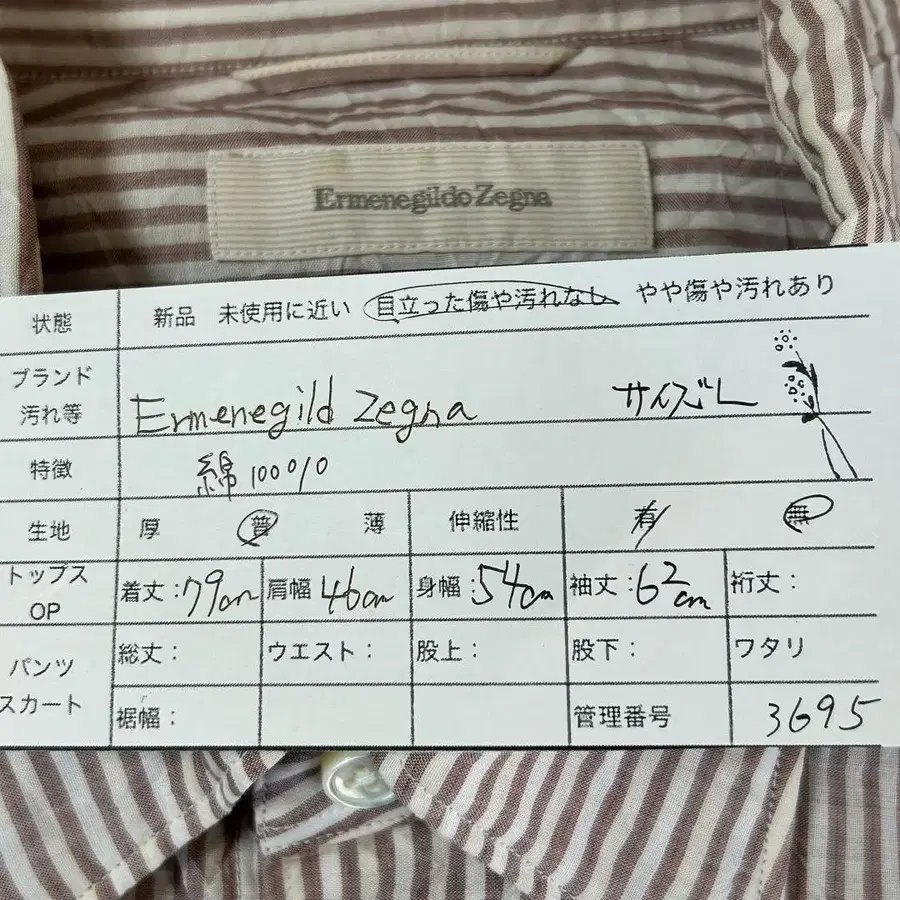 Ermenegildo Zegna
状態 新品 未使用に近い 目立った傷や汚れなし やや傷や汚れあり
ブランド
汚れ等 Ermenegild Zegna サイズL
特徴 綿100%
生地 厚 普 薄 伸縮性 有 無
トップス
OP 着丈:79cm 肩幅 46cm 身幅:54cm 袖丈:62cm 裄丈:
パンツ
スカート 総丈: ウエスト: 股上: 股下: ワタリ
裾幅: 管理番号 3695